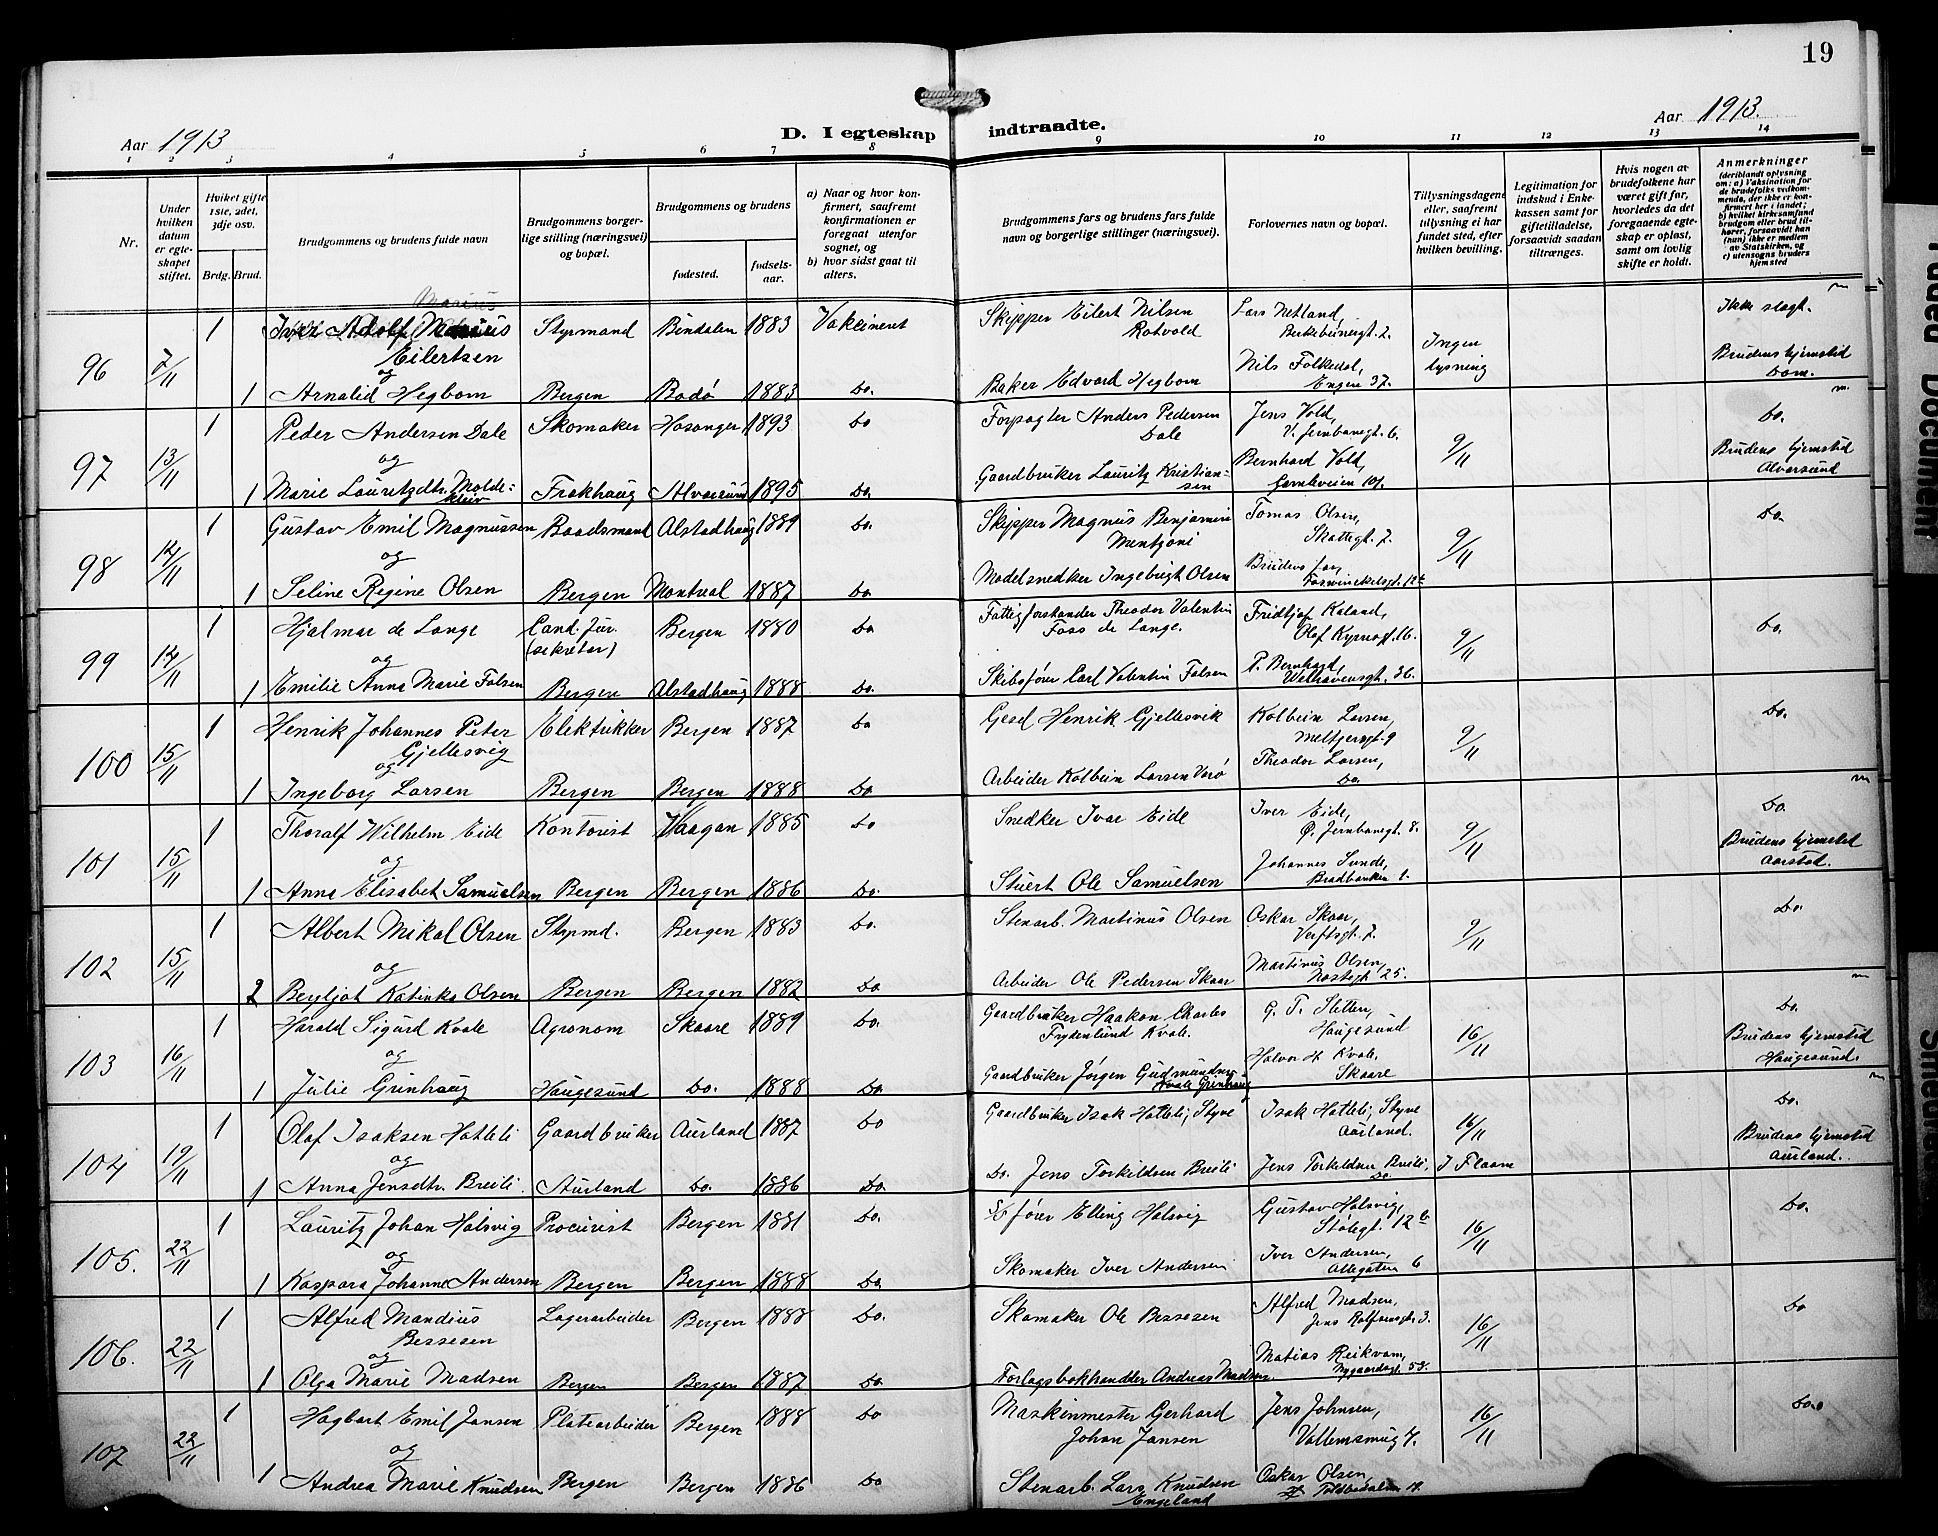 19
Aar 1913
D. I egteskap indtraadte.
Aar 1913.
1 2 3 4 5 6 7 8 9 10 11 12 13 14
Nr.
Under hvilken datum er egteskapet stiftet.
Hviket gifte 1ste, 2det, 3dje osv.
Brdg. Brud.
Brudgommens og brudens fulde navn
Brudgommens borgerlige stilling (næringsvei) og bopæl.
Brudgommens og brudens
fødested.
fødsels-aar.
a) Naar og hvor konfirmert, saafremt konfirmationen er foregaat utenfor sognet, og
b) hvor sidst gaat til alters.
Brudgommens fars og brudens fars fulde navn og borgerlige stillinger (næringsvei).
Forlovernes navn og bopæl.
Tillysningsdagene eller, saafremt tillysning ei har fundet sted, efter hvilken bevilling.
Legitimation for indskud i Enkekassen samt for giftetilladelse, forsaavidt saadan tiltrænges.
Hvis nogen av brudefolkene har været gift før, hvorledes da det foregaaende egteskap er opløst, samt om lovlig skifte er holdt.
Anmerkninger
(deriblandt oplysning om: a) Vaksination for de brudefolks vedkommende, der ikke er konfirmert her i landet; b) hvilket kirkesamfund brudgom eller brud tilhører, forsaavidt han (hun) ikke er medlem av Statskirken, og c) utensogns bruders hjemsted
Marius
96 7/11 1 Iver Adolf Marius Eilertsen Styrmand Bindalen 1883 Vakcineret Skipper Eilert Nilsen Rotvold Lars Netland, Birkebeinergt. 2. Ingen lysning Ikke slegt.
og
1 Arnalid Hegbom Bergen Bodø 1883 Do. Baker Edvard Hegbom Nils Folkedal, Engen 37. Brudens hjemsted Dom.
97 13/11 1 Peder Andersen Dale Skomaker Hosanger 1893 Do Forpagter Anders Pedersen Dale Jens Vold, V. Jernbanegt. 6. 9/11 Do.
og
1 Marie Lauritzdtr. Moldekleiv Frekhaug Alversund 1895 Do. Gaardbruker Lauritz Kristiansen Bernhard Vold, Gamleveien 101. Brudens hjemsted Alversund
98 14/11 1 Gustav Emil Magnussen Baadsmand Alstadhaug 1889 Do. Skipper Magnus Benjamin Mentzoni Tomas Olsen, Skottegt. 7. 9/11 Do.
og
1 Seline Regine Olsen Bergen Montreal 1887 Do. Modelsnedker Ingebrigt Olsen Brudens far, Foswinckelsgt.
99 14/11 1 Hjalmar de Lange Cand. Jur. (sekretær) Bergen 1880 Do Fattigforstander Theodor Valentin Foss de Lange. Fridtjof Kaland, Olaf Kyrresgt. 16. 9/11 Do.
og
1 Emilie Anna Marie Falsen Bergen Alstadhaug 1888 Do. Skibsfører Carl Valentin Falsen P. Bernhard, Welhavensgt. 36.
100 15/11 1 Henrik Johannes Peter Gjellesvig Elektrikker Bergen 1887 Do Gesd Henrik Gjellesvik Kolbein Larsen, Meltzersgt. 9 9/11 Do.
og
1 Ingeborg Larsen Bergen Bergen 1888 Do Arbeider Kolbein Larsen Varø Theodor Larsen, Do.
101 15/11 1 Thoralf Wilhelm Eide Kontorist Vaagan 1885 Do Snedker Ivar Eide Iver Eide, Ø. Jernbanegt. 8. 9/11 Do.
og
1 Anna Elisabet Samuelsen Bergen Bergen 1886 Do. Stuert Ole Samuelsen Johannes Sunde, Bradbænken 1. Brudens hjemsted Aarstad.
102 15/11 1 Albert Mikal Olsen Styrmd. Bergen 1883 Do. Stenarb. Martinus Olsen Oskar Skaar, Verftsgt. 7. 9/11 Do.
og
2 Bergljot Katinka Olsen Bergen Bergen 1882 Do Arbeider Ole Pedersen Skaar Martinus Olsen, Nøstegt. 25.
103 16/11 1 Harald Sigurd Kvale Agronom Skaare 1889 Do. Gaardbruker Haakon Charles Frydenlund Kvale. G. T. Sletten, Haugesund 16/11 Do.
og
1 Julie Grinhaug Haugesund Do. 1888 Do. Gaardbruker Jørgen Gudmundsen Kvale Grinhaug Halvor H. Kvale. Skaare Brudens hjemsted Haugesund.
104 19/11 1 Olaf Isaksen Hatleli Gaardbruker Aurland 1887 Do Gaardbruker Isak Hatleli, Styve Isak Hatleli, Styve Aurland. 16/11 Do.
og
1 Anna Jensdtr. Breili. Aurland Do. 1886 Do. Do. Jens Torkildsen Breili Jens Torkildsen Breili, Do. I Flaam Brudens hjemsted Aurland.
105. 22/11 1 Lauritz Johan Holsvig Procurist Bergen 1881 Do. Sk. fører Elling Holsvig Gustav Holsvig, Stølegt. 12 b 16/11 Do.
og
1 Kaspara Johanne Andersen Bergen Bergen 1888 Do. Skomaker Iver Andersen Iver Andersen, Allegaten 6
106. 22/11 1 Alfred Mandius Bessesen Lagerarbeider Bergen 1888 Do. Skomaker Ole Bessesen Alfred Madsen, Jens Rolfsensgt. 3. 16/11 Do
og
1 Olga Marie Madsen Bergen Bergen 1887 Do. Forlagsbokhandler Andreas Madsen. Matias Reikvam, Nygaardsgt. 59.
107 22/11 1 Hagbart Emil Jansen Platearbeider Bergen 1888 Do Maskinmester Gerhard Johan Jansen Jens Johnsen, Vollemsmug 4. 16/11 Do.
og
1 Andrea Marie Knudsen Bergen Bergen 1886 Do Stenarb. Lars Knudsen Engeland Oskar Olsen, Toldbodalm. 14.